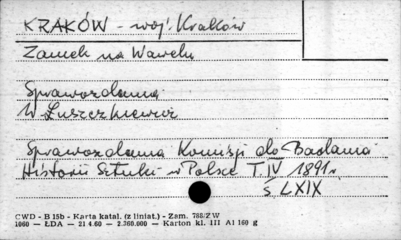 KRAKÓW - woj. Kraków
Zamek na Wawelu
Sprawozdania
W Łuszczkiewicz
Sprawozdania Komisji do Badania
Historii Sztuki w Polsce T. IV 1891 r.
s. LXIX
CWD - B 15b - Karta katal. (z liniat.) - Zam. 768/ZW
1060 - ŁDA - 21 4.60 - 2.360.000 - Karton kl. III A1 160 g